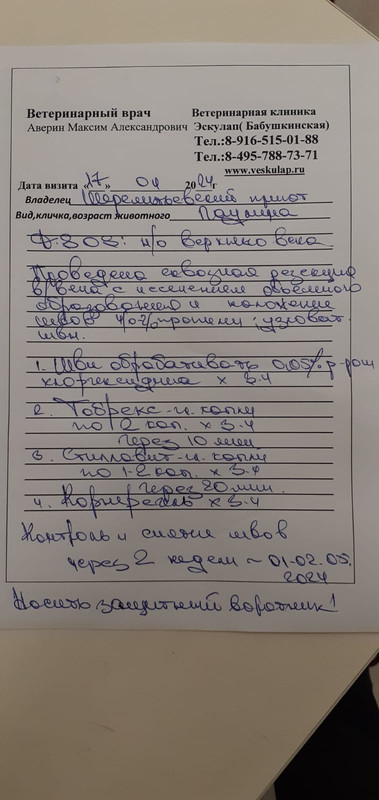 Ветеринарный врач
Ветеринарная клиника
Аверин Максим Александрович
Эскулап( Бабушкинская)
Тел.:8-916-515-01-88
Тел.:8-495-788-73-71
www.veskulap.ru
Дата визита «17» 04 2024г
Владелец Шереметьевский приют
Вид,кличка,возраст животного Паулина
D-SOS: н/о верхнего века
Проведена сквозная резекция
в/века с иссечением объемного
образования и наложение
швов узловат.
швы.
1. Швы обрабатывать 0,05% р-ром
хлоргексидина х 3-4
2. Тобрекс-гл. капли
по 2 кап. х 3-4
через 10 мин
3. Стиллавит-гл. капли
по 1-2 кап. х 3-4
через 20 мин.
4. Корнерегель х 3-4
Контроль и снятие швов
через 2 недели ~ 01-02.05.
2024
Носить защитный воротник!